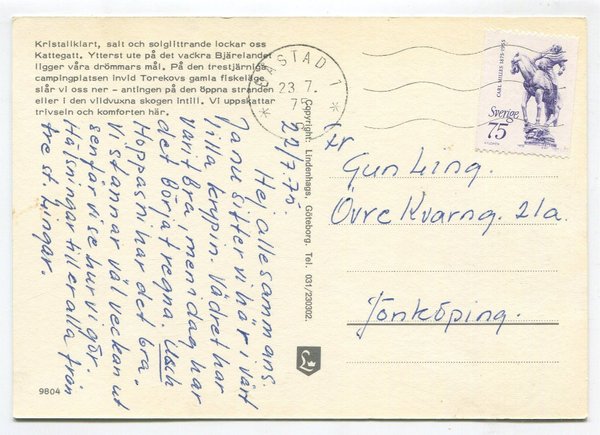 Kristallklart, salt och solglittrande lockar oss
Kattegatt. Ytterst ute på det vackra Bjärelandet
ligger våra drömmars mål. På den trestjärniga
campingplatsen invid Torekovs gamla fiskeläge
slår vi oss ner - antingen på den öppna stranden
eller i den vildvuxna skogen intill. Vi uppskattar
trivseln och komforten här.
22/7.75.
Hej allesammans.
Ja nu sitter vi här i vårt
lilla krypin. Vädret har
varit bra, men i dag har
det börjat regna. Usch
Hoppas ni har det bra.
Vi stannar väl veckan ut
sen får vi se hur vi gör.
Hälsningar till er alla från
tre st. Lingar.
9804
Copyright: Lindenhags, Göteborg. Tel. 031/230302.
L
BÅSTAD 1
23 7.
75
CARL MILLES 1875-1955
Sverige
75
Fr
Gun Ling.
Övre Kvarng. 21a.
Jönköping.